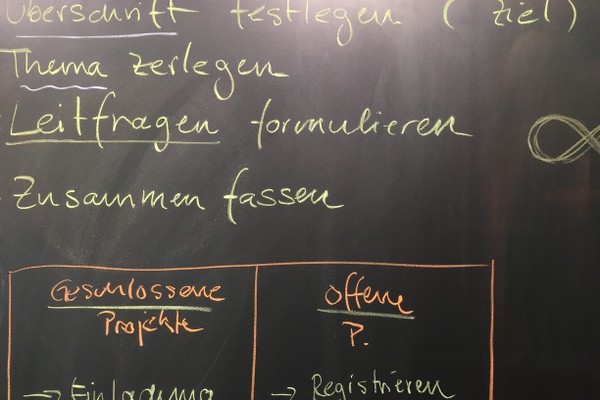 Überschrift festlegen (Ziel)
Thema zerlegen
Leitfragen formulieren
Zusammenfassen
Geschlossene Projekte
Offene P.
→ Einladung
→ Registrieren